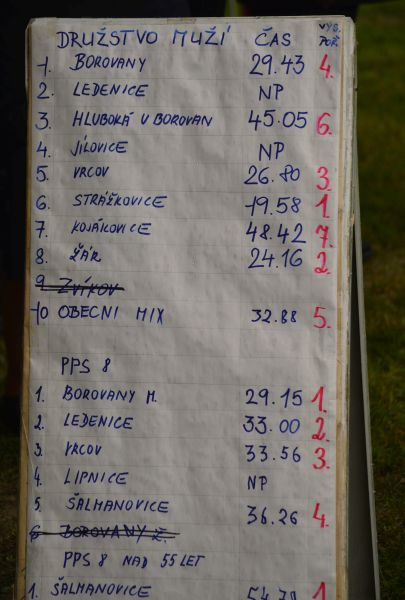 DRUŽSTVO MUŽÍ ČAS VÝS. POŘ.
1. BOROVANY 29.43 4.
2. LEDENICE NP
3. HLUBOKÁ U BOROVAN 45.05 6.
4. JÍLOVICE NP
5. VRCOV 26.80 3.
6. STRÁŽKOVICE 19.58 1.
7. KOJÁKOVICE 48.42 7.
8. ŽÁR 24.16 2.
9 ZVÍKOV
10 OBECNI MIX 32.88 5.
PPS 8
1. BOROVANY M. 29.15 1.
2. LEDENICE 33.00 2.
3. VRCOV 33.56 3.
4. LIPNICE NP
5. ŠALMANOVICE 36.26 4.
6 BOROVANY Ž.
PPS 8 NAD 55 LET
1. ŠALMANOVICE 1.